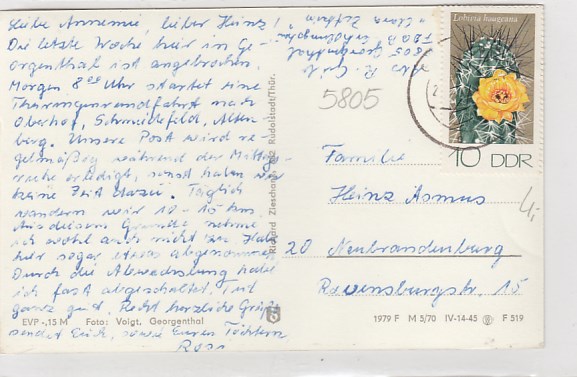 Liebe Annemie, lieber Heinz!
Die letzte Woche hier in Ge-
orgenthal ist angebrochen.
Morgen 8 Uhr startet eine
Thüringenrundfahrt nach
Oberhof, Schmiedefeld, Alten-
berg. Unsere Post wird re-
gelmäßig während der Mittag-
erledigt, sonst haben wir
keine Zeit dazu. Täglich
wandern wir 10 - 15 km.
Aus diesem Grunde nehme
ich wohl auch nicht zu, habe
hier sogar etwas abgenommen.
Durch die Abwechslung habe
ich fast abgeschaltet. Tut
ganz gut. Recht herzliche Grüße
sendet Euch, sowie Euren Töchtern
Rosi
EVP -,15 M Foto: Voigt, Georgenthal
Richard Zieschank 682 Rudolstadt/Thür.
5805 Georgenthal
"Clara Zetkin"
5805
Lobivia haageana
10 DDR
Familie
Heinz Asmus
20 Neubrandenburg
Ravensburgstr. 15
4,-
1979 F M 5/70 IV-14-45 F 519